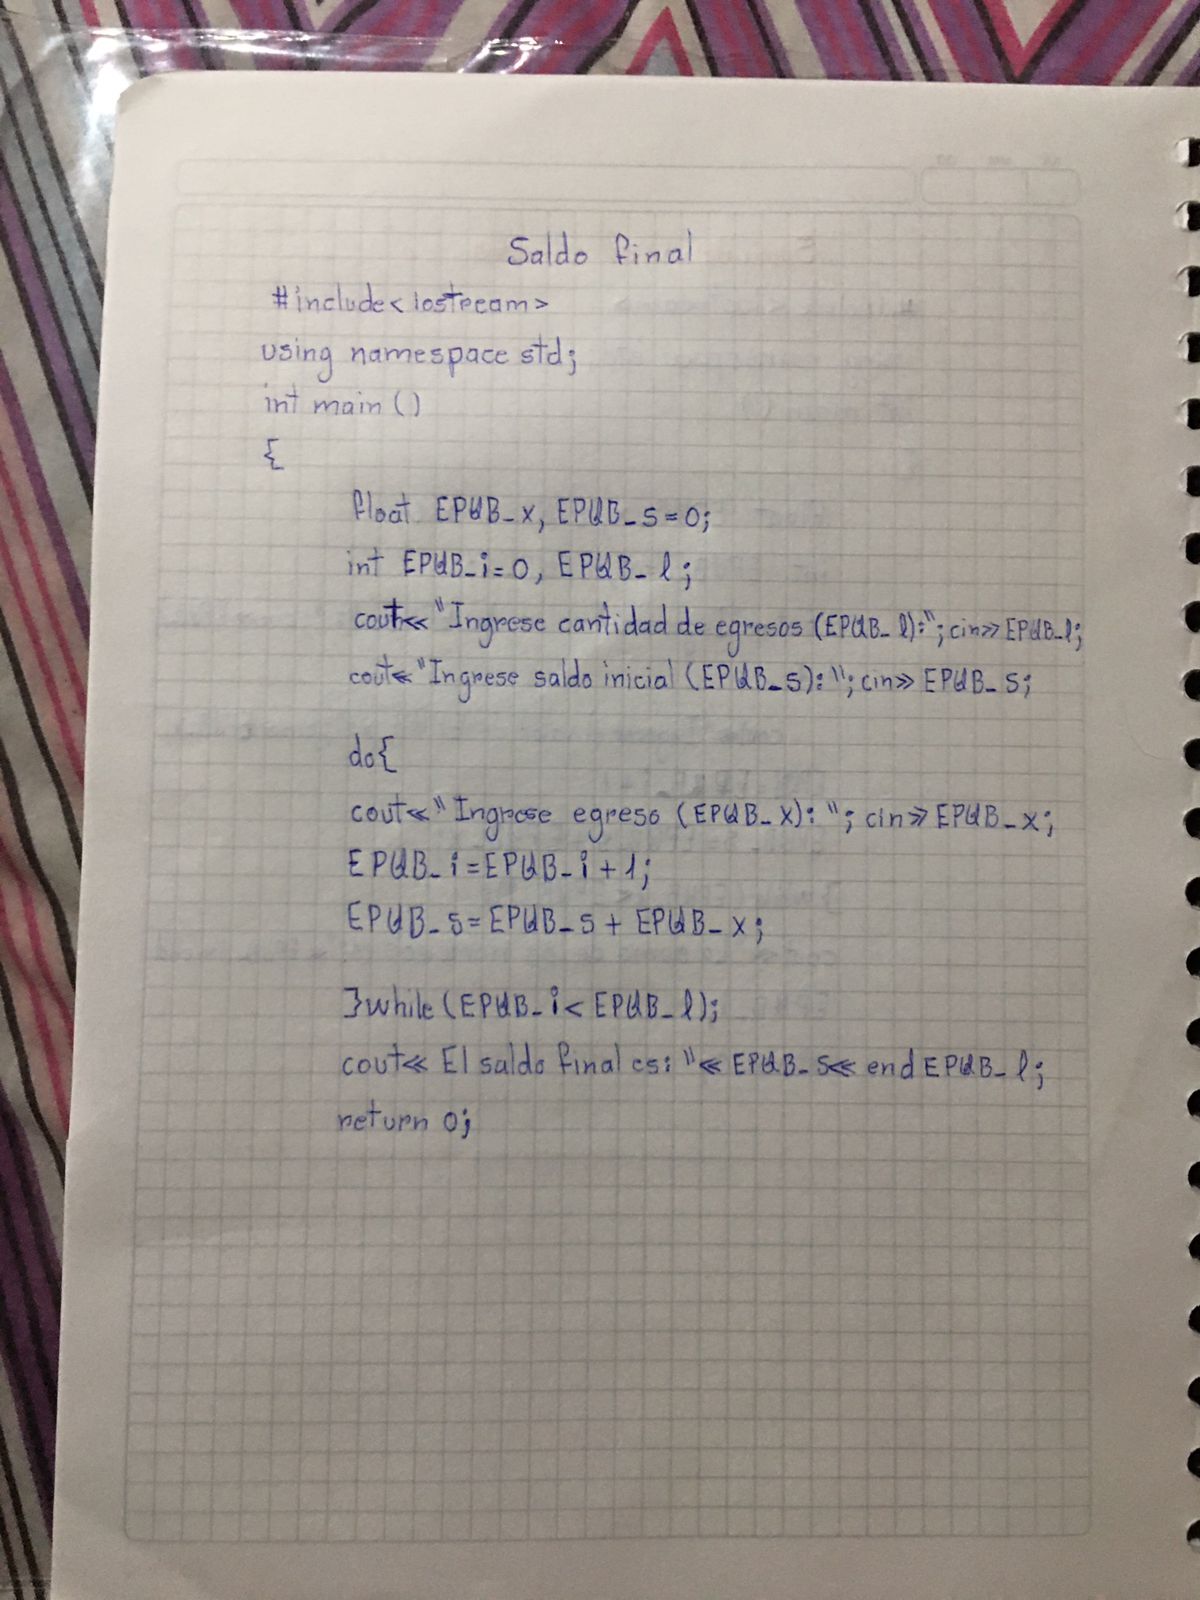 Saldo final
#include<iostream>
using namespace std;
int main ()
{
float EPQB_x, EPQB_s=0;
int EPQB_i=0, EPQB_l;
cout<<"Ingrese cantidad de egresos (EPQB_l):"; cin>>EPQB_l;
cout<<"Ingrese saldo inicial (EPQB_s): "; cin>> EPQB_s;
do{
cout<<"Ingrese egreso (EPQB_x): "; cin>>EPQB_x;
EPQB_i=EPQB_i+1;
EPQB_s=EPQB_s + EPQB_x;
}while (EPQB_i< EPQB_l);
cout<< El saldo final es: "<< EPQB_s<< end EPQB_l;
return 0;